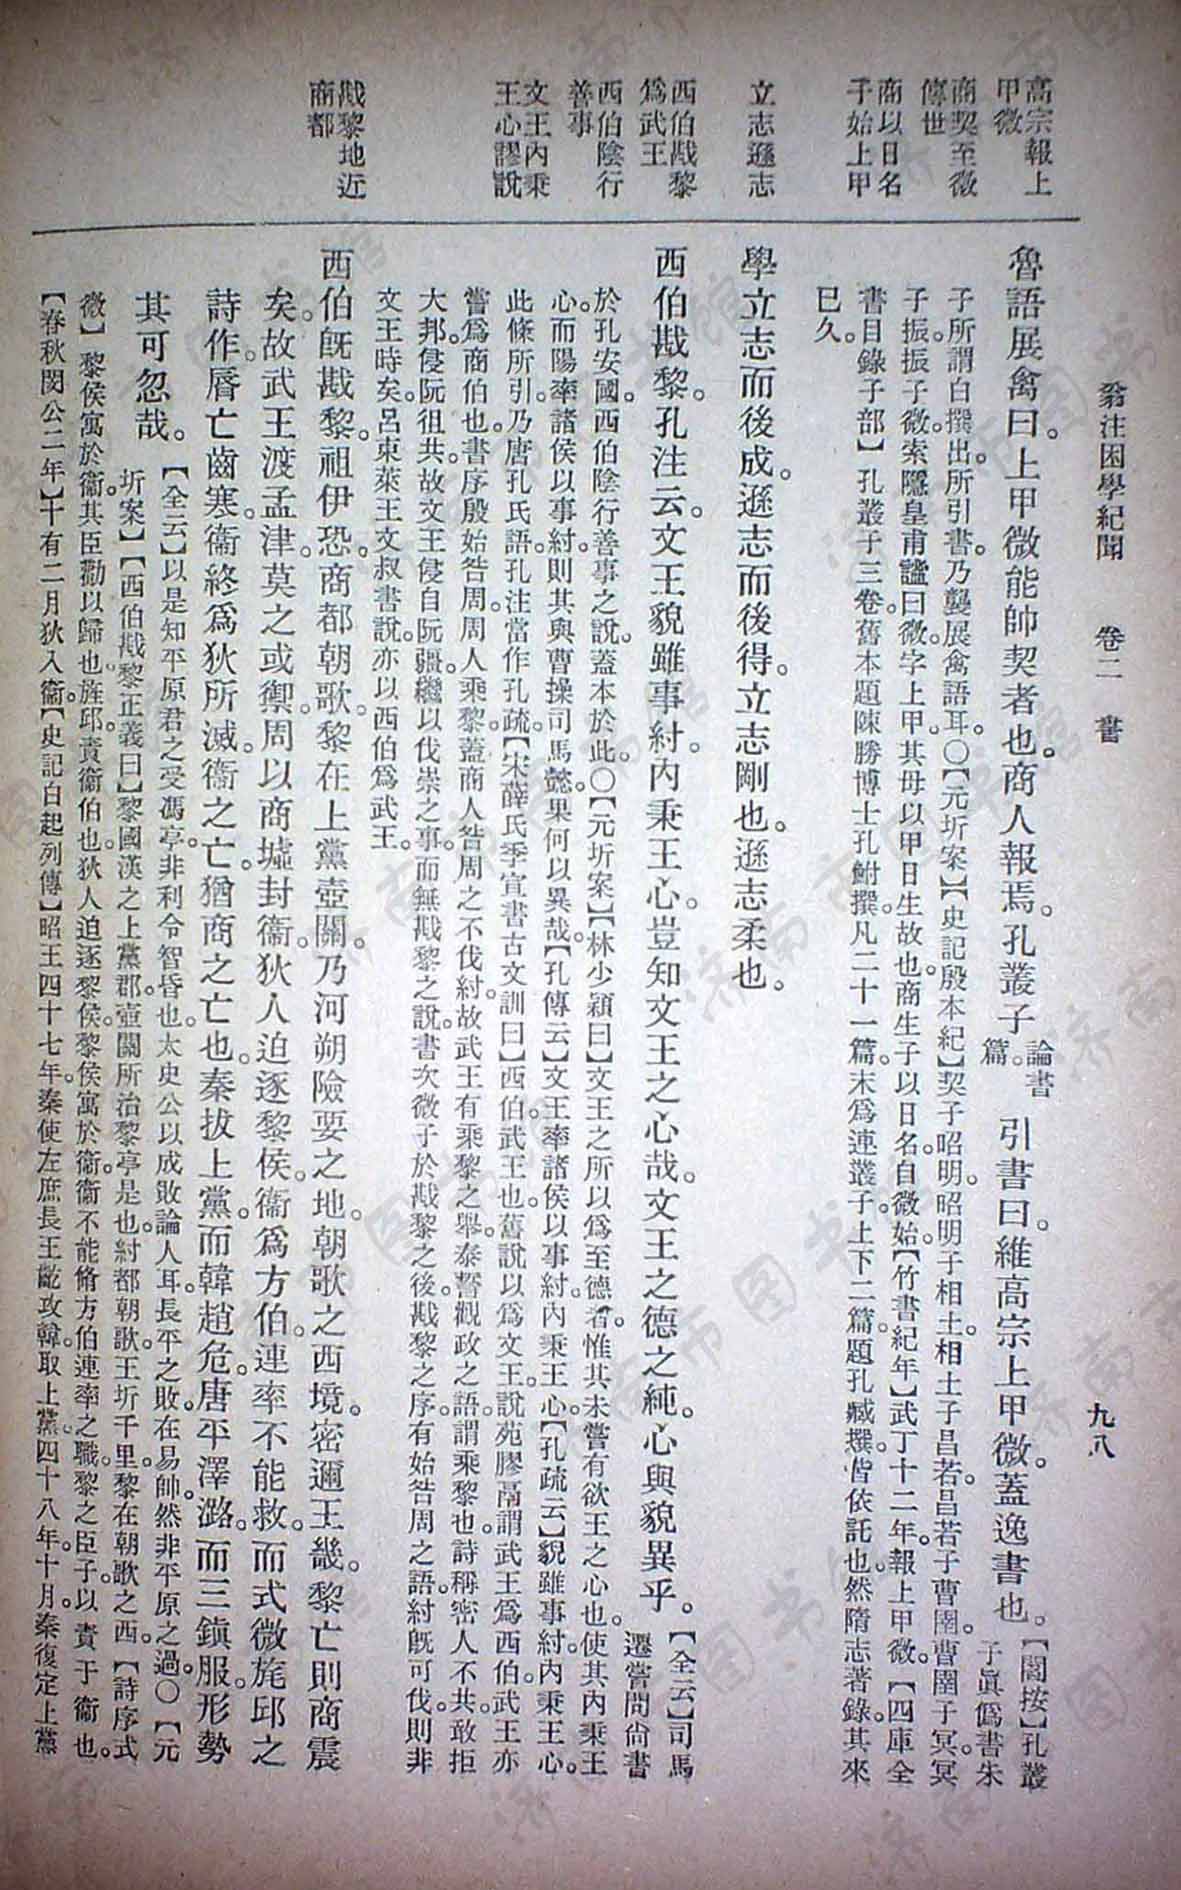 翁注困學紀聞　卷二　書　九八
高宗報上
甲微
商契至微
傳世
商以日名
子始上甲
立志遜志
西伯戡黎
爲武王
西伯陰行
善事
文王內秉
王心謬說
戡黎地近
商都
魯語展禽曰。上甲微能帥契者也。商人報焉。孔叢子論書篇。引書曰。維高宗上甲微。蓋逸書也。【閻按】孔叢
子眞僞書朱
子所謂白撰出。所引書。乃襲展禽語耳。〇【元圻案】【史記殷本紀】契子昭明。昭明子相土。相土子昌若。昌若子曹圉。曹圉子冥。冥
子振。振子微。索隱。皇甫謐曰。微字上甲。其母以甲日生故也。商生子以日名。自微始。【竹書紀年】武丁十二年。報上甲微。【四庫全
書目錄子部】孔叢子三卷。舊本題陳勝博士孔鮒撰。凡二十一篇。末爲連叢子上下二篇。題孔臧撰。皆依託也。然隋志著錄。其來
已久。
學立志而後成。遜志而後得。立志剛也。遜志柔也。
西伯戡黎。孔注云。文王貌雖事紂。內秉王心。豈知文王之心哉。文王之德之純。心與貌異乎。【全云】司馬
遷嘗問尙書
於孔安國。西伯陰行善事之說。蓋本於此。〇【元圻案】【林少穎曰】文王之所以爲至德者。惟其未嘗有欲王之心也。使其內秉王
心。而陽率諸侯以事紂。則其與曹操司馬懿。果何以異哉。【孔傳云】文王率諸侯以事紂。內秉王心。【孔疏云】貌雖事紂。內秉王心。
此條所引。乃唐孔氏語。孔注當作孔疏。【宋薛氏季宣書古文訓曰】西伯。武王也。舊說以爲文王。說苑膠鬲謂武王爲西伯。武王亦
嘗爲商伯也。書序殷始咎周。周人乘黎。蓋商人咎周之不伐紂。故武王有乘黎之舉。泰誓觀政之語。謂乘黎也。詩稱密人不共。敢拒
大邦。侵阮徂共。故文王侵自阮疆。繼以伐崇之事。而無戡黎之說。書次微子於戡黎之後。戡黎之序。有始咎周之語。紂旣可伐。則非
文王時矣。呂東萊王文叔書說。亦以西伯爲武王。
西伯旣戡黎。祖伊恐。商都朝歌。黎在上黨壺關。乃河朔險要之地。朝歌之西境。密邇王畿。黎亡則商震
矣。故武王渡孟津。莫之或禦。周以商墟封衞。狄人迫逐黎侯。衞爲方伯。連率不能救。而式微旄邱之
詩作。脣亡齒寒。衞終爲狄所滅。衞之亡。猶商之亡也。秦拔上黨。而韓趙危。唐平澤潞。而三鎭服。形勢
其可忽哉。【全云】以是知平原君之受馮亭。非利令智昏也。太史公以成敗論人耳。長平之敗。在易帥。然非平原之過。〇【元
圻案】【西伯戡黎正義曰】黎國漢之上黨郡。壺關所治黎亭是也。紂都朝歌。王圻千里。黎在朝歌之西。【詩序式
微】黎侯寓於衞。其臣勸以歸也。旄邱。責衞伯也。狄人迫逐黎侯。黎侯寓於衞。衞不能脩方伯連率之職。黎之臣子。以責于衞也。
【春秋閔公二年】十有二月狄入衞。【史記白起列傳】昭王四十七年。秦使左庶長王齕攻韓。取上黨。四十八年。十月。秦復定上黨